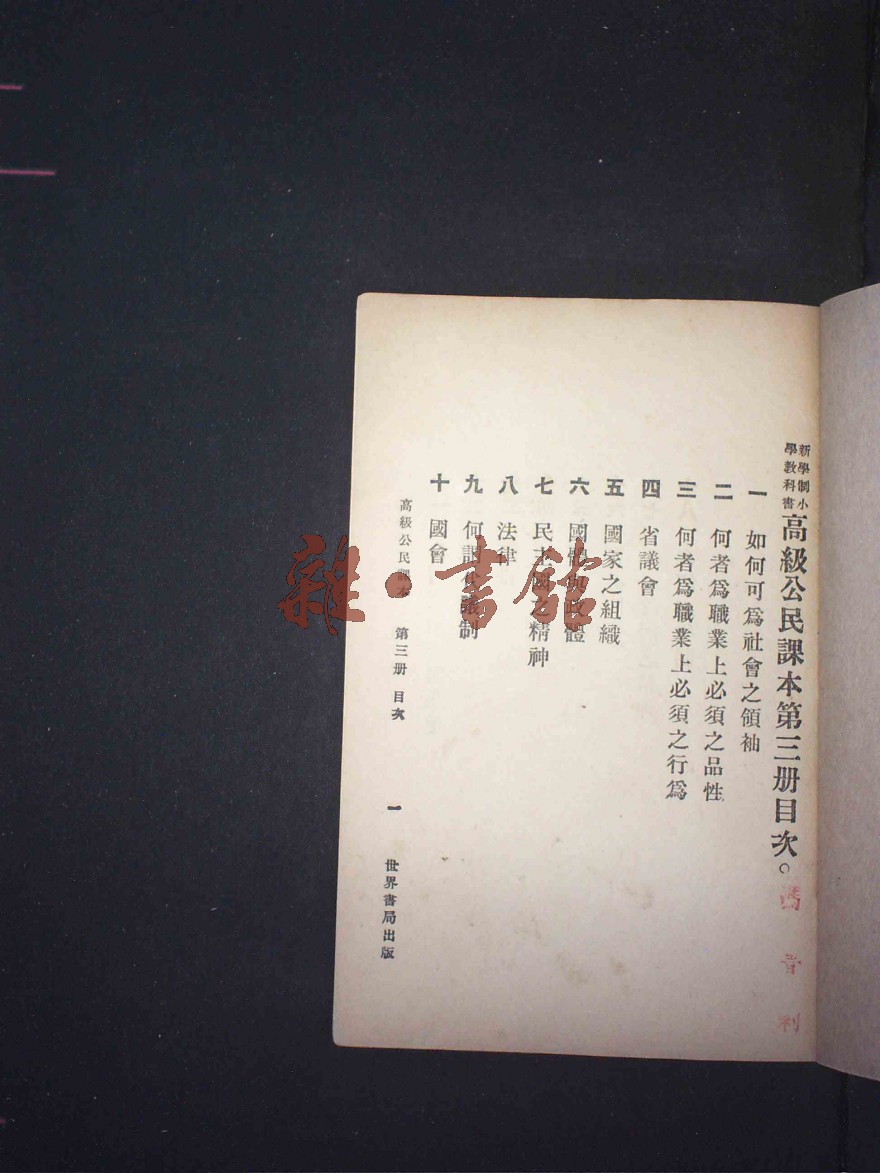 新學制小學教科書
高級公民課本第三册目次。
一 如何可爲社會之領袖
二 何者爲職業上必須之品性
三 何者爲職業上必須之行爲
四 省議會
五 國家之組織
六 國體與政體
七 民主國之精神
八 法律
九 何謂 制
十 國會
高級公民課本 第三册 目次 一 世界書局出版
雜·書館